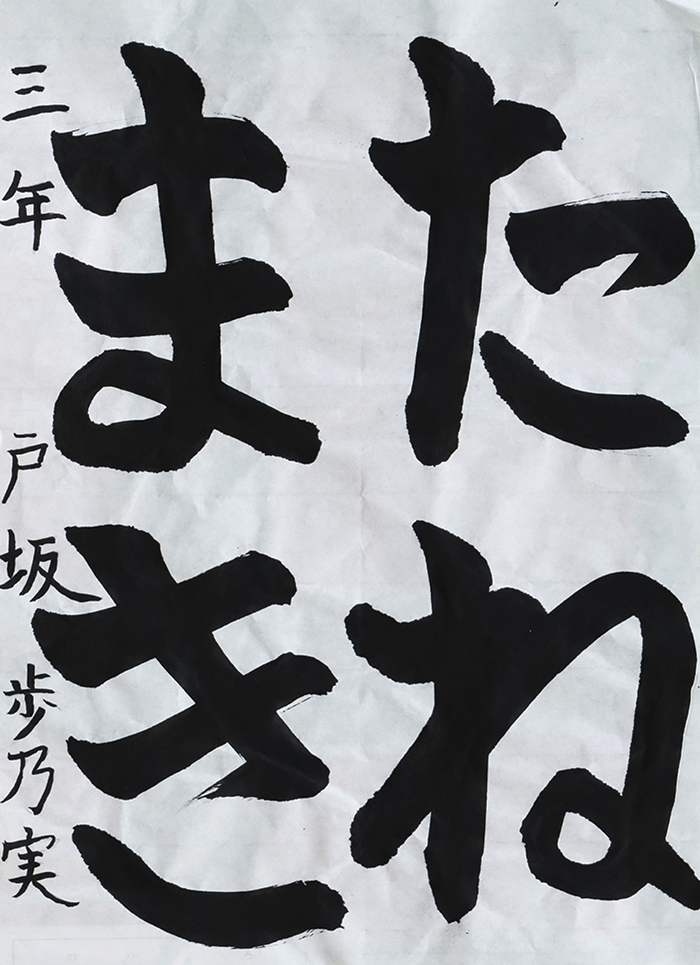 たね
まき
三年 戸坂 歩乃実